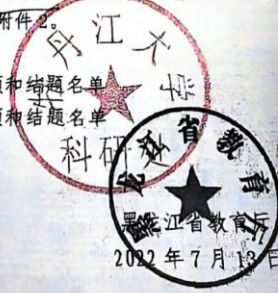 附件2。
和结题名单
和结题名单
丹江大学
科研处
黑龙江省教育厅
黑龙江省教育厅
2022年7月13日